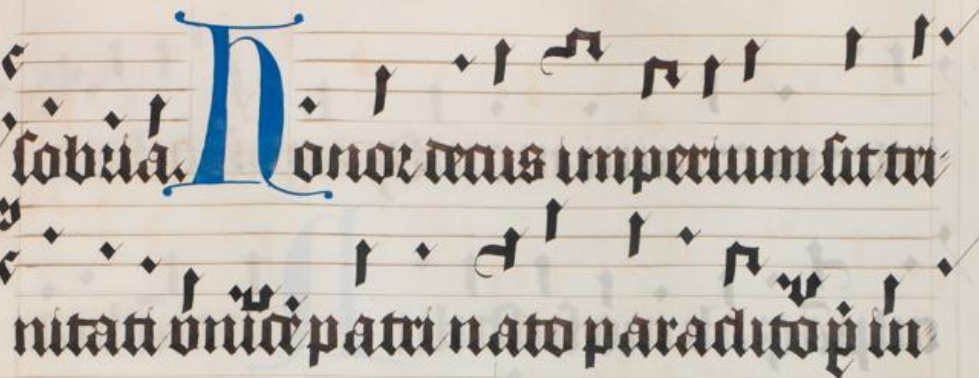 sobria. Honor decus imperium sit tri
nitati vnice patri nato paraclito p in